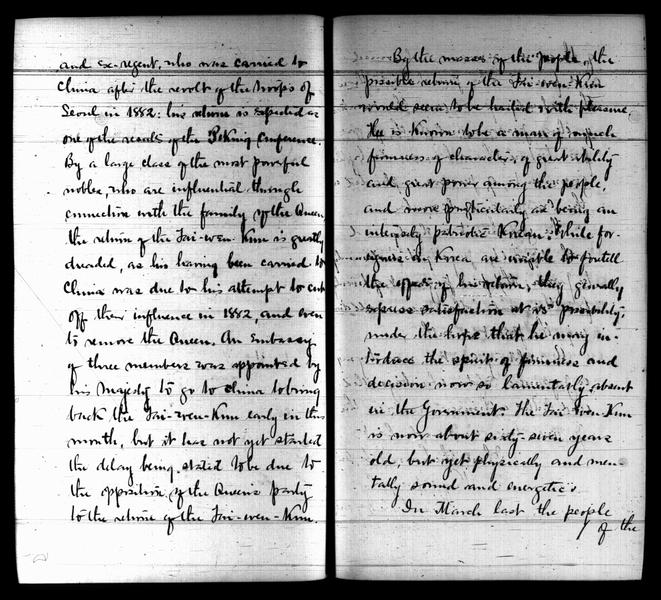 and ex-regent, who was carried to
China after the revolt of the troops of
Seoul in 1882: his return is expected as
one of the results of the Peking Conference.
By a large class of the most powerful
nobles, who are influential through
connection with the family of the Queen,
the return of the Tai-wen-Kun is greatly
dreaded, as his having been carried to
China was due to his attempt to cut
off their influence in 1882, and even
to remove the Queen. An Embassy
of three members was appointed by
his Majesty to go to China to bring
back the Tai-wen-Kun early in this
month, but it has not yet started
the delay being stated to be due to
the opposition of the Queens party
to the return of the Tai-wen-Kun.
By the masses of the people, the
possible return of the Tai-wen-Kun
would seem to be hailed with pleasure,
He is known to be a man of
firmness of character, of great ability
and great power among the people,
and more particularly as being an
intensely patriotic Korean. While for-
eigners in Korea are unable to foretell
the effect of his return, they generally
express satisfaction at its possibility,
under the hope that he may in-
troduce the spirit of firmness and
decision now so lamentably absent
in the Government. The Tai-wen-Kun
is now about sixty-seven years
old, but yet physically and men-
tally sound and energetic.
In March last the people
of the